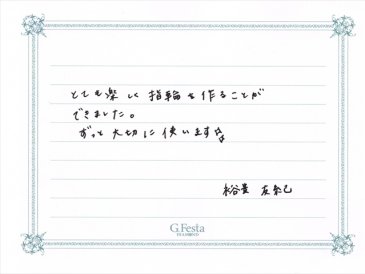 とても楽しく指輪を作ることが
できました。
ずっと大切に使います
裕貴 友紀
G.Festa
DIAMOND